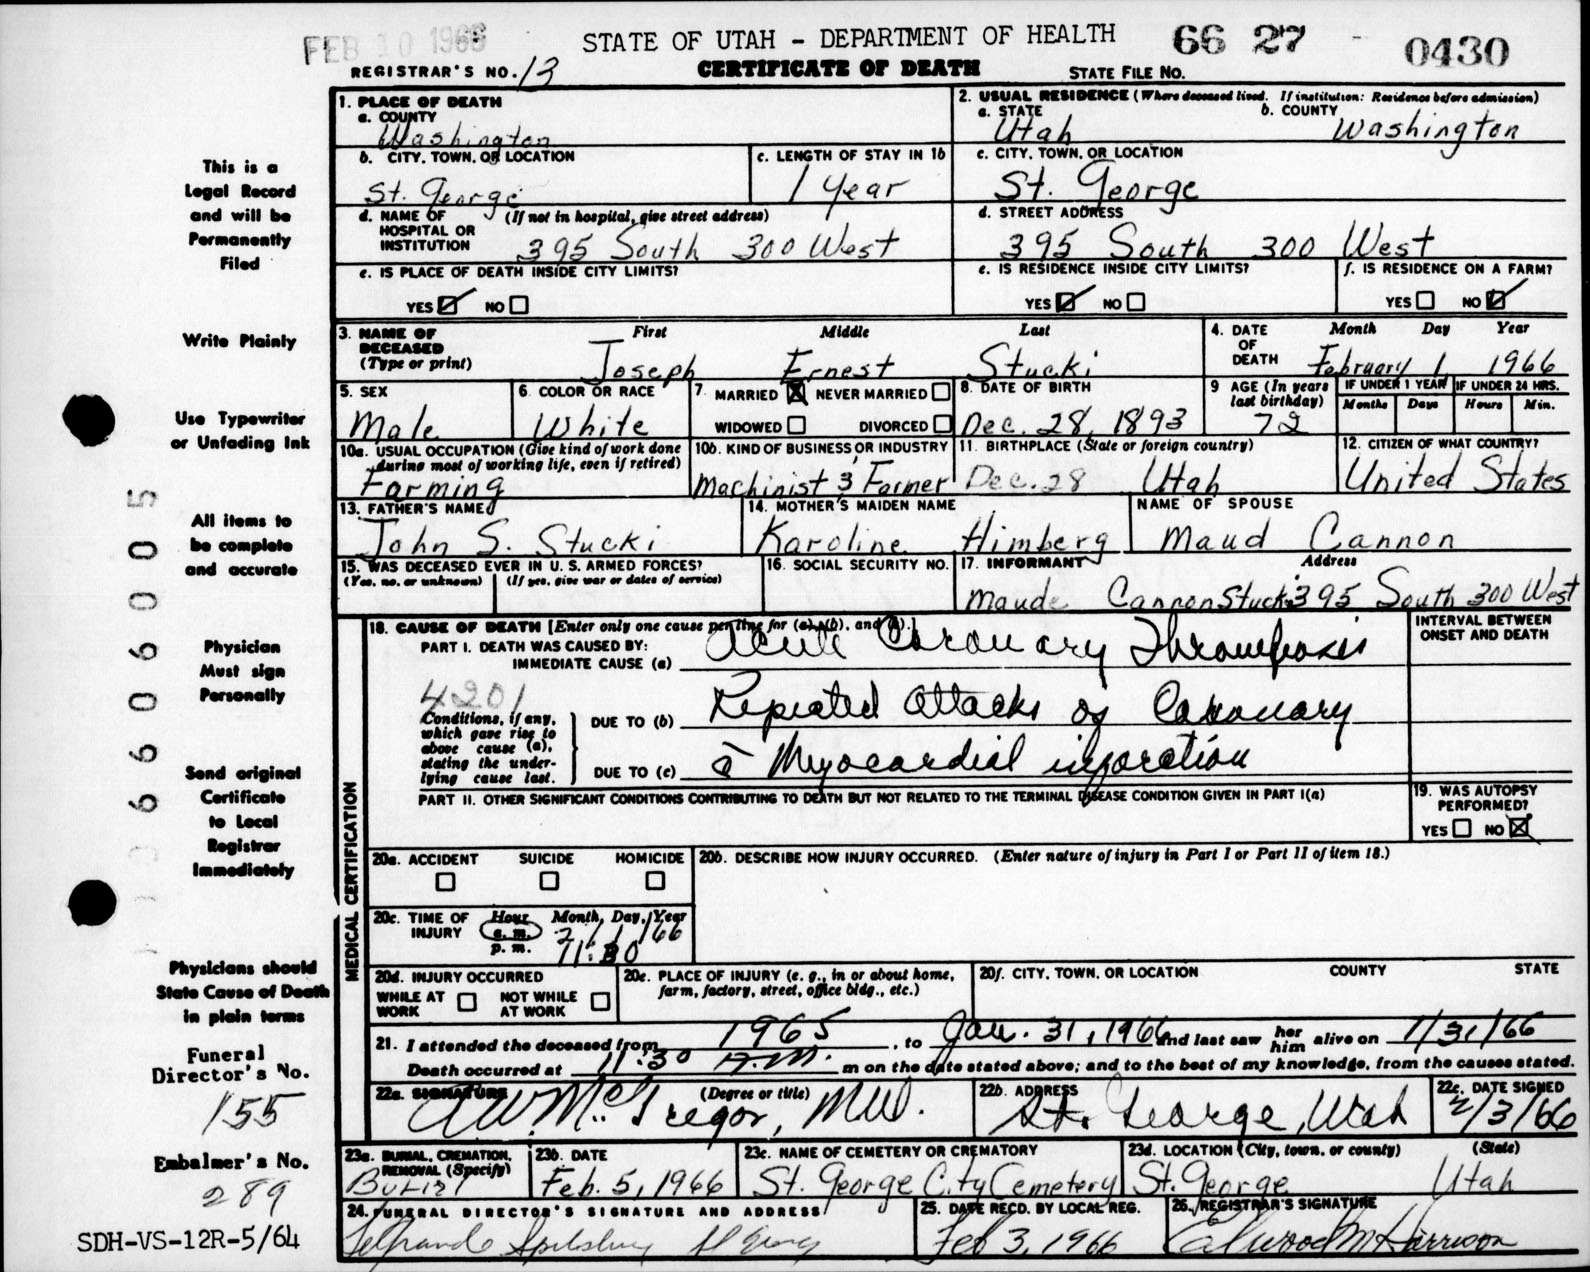 FEB 10 1966
STATE OF UTAH - DEPARTMENT OF HEALTH
66 27 - 0430
REGISTRAR'S NO. 13
CERTIFICATE OF DEATH
STATE FILE NO.
This is a
Legal Record
and will be
Permanently
Filed
Write Plainly
Use Typewriter
or Unfading Ink
All items to
be complete
and accurate
Physician
Must sign
Personally
Send original
Certificate
to Local
Registrar
Immediately
Physicians should
State Cause of Death
in plain terms
Funeral
Director's No.
155
Embalmer's No.
289
SDH-VS-12R-5/64
1. PLACE OF DEATH
a. COUNTY
Washington
2. USUAL RESIDENCE (Where deceased lived. If institution: Residence before admission)
a. STATE
Utah
b. COUNTY
Washington
b. CITY, TOWN, OR LOCATION
St. George
c. LENGTH OF STAY IN 1b
1 Year
c. CITY, TOWN, OR LOCATION
St. George
d. NAME OF (If not in hospital, give street address)
HOSPITAL OR
INSTITUTION
395 South 300 West
d. STREET ADDRESS
395 South 300 West
e. IS PLACE OF DEATH INSIDE CITY LIMITS?
YES NO
e. IS RESIDENCE INSIDE CITY LIMITS?
YES NO
f. IS RESIDENCE ON A FARM?
YES NO
3. NAME OF
DECEASED
(Type or print)
First Middle Last
Joseph Ernest Stucki
4. DATE
OF
DEATH
Month Day Year
February 1 1966
5. SEX
Male
6. COLOR OR RACE
White
7. MARRIED NEVER MARRIED
WIDOWED DIVORCED
8. DATE OF BIRTH
Dec. 28, 1893
9 AGE (In years
last birthday)
72
IF UNDER 1 YEAR IF UNDER 24 HRS.
Months Days Hours Min.
10a. USUAL OCCUPATION (Give kind of work done
during most of working life, even if retired)
Farming
10b. KIND OF BUSINESS OR INDUSTRY
Machinist & Farmer
11. BIRTHPLACE (State or foreign country)
Dec. 28 Utah
12. CITIZEN OF WHAT COUNTRY?
United States
13. FATHER'S NAME
John S. Stucki
14. MOTHER'S MAIDEN NAME
Karoline Himberg
NAME OF SPOUSE
Maud Cannon
15. WAS DECEASED EVER IN U. S. ARMED FORCES?
(Yes, no, or unknown) (If yes, give war or dates of service)
16. SOCIAL SECURITY NO.
17. INFORMANT Address
Maude Cannon Stucki 395 South 300 West
MEDICAL CERTIFICATION
18. CAUSE OF DEATH [Enter only one cause per line for (a), (b), and (c).]
INTERVAL BETWEEN
ONSET AND DEATH
PART I. DEATH WAS CAUSED BY:
IMMEDIATE CAUSE (a)
Acute Coronary Thrombosis
4201
Conditions, if any,
which gave rise to
above cause (a),
stating the under-
lying cause last.
DUE TO (b)
Repeated Attacks of Coronary
DUE TO (c)
c̄ Myocardial infarction
PART II. OTHER SIGNIFICANT CONDITIONS CONTRIBUTING TO DEATH BUT NOT RELATED TO THE TERMINAL DISEASE CONDITION GIVEN IN PART I(a)
19. WAS AUTOPSY
PERFORMED?
YES NO
20a. ACCIDENT SUICIDE HOMICIDE
20b. DESCRIBE HOW INJURY OCCURRED. (Enter nature of injury in Part I or Part II of item 18.)
20c. TIME OF
INJURY
Hour Month, Day, Year
a. m. 2/1/66
p. m. 11:30
20d. INJURY OCCURRED
WHILE AT
WORK
NOT WHILE
AT WORK
20e. PLACE OF INJURY (e. g., in or about home,
farm, factory, street, office bldg., etc.)
20f. CITY, TOWN, OR LOCATION COUNTY STATE
21. I attended the deceased from 1965, to Jan. 31, 1966 and last saw her him alive on 1/31/66
Death occurred at 11:30 A.M. m on the date stated above; and to the best of my knowledge, from the causes stated.
22a. SIGNATURE (Degree or title)
A W. McGregor, M.D.
22b. ADDRESS
St. George, Utah
22c. DATE SIGNED
2/3/66
23a. BURIAL, CREMATION,
REMOVAL (Specify)
Burial
23b. DATE
Feb. 5, 1966
23c. NAME OF CEMETERY OR CREMATORY
St. George City Cemetery
23d. LOCATION (City, town, or county) (State)
St. George Utah
24. FUNERAL DIRECTOR'S SIGNATURE AND ADDRESS
Spilsbury St George
25. DATE RECD. BY LOCAL REG.
Feb 3, 1966
26. REGISTRAR'S SIGNATURE
Harrison
6606005